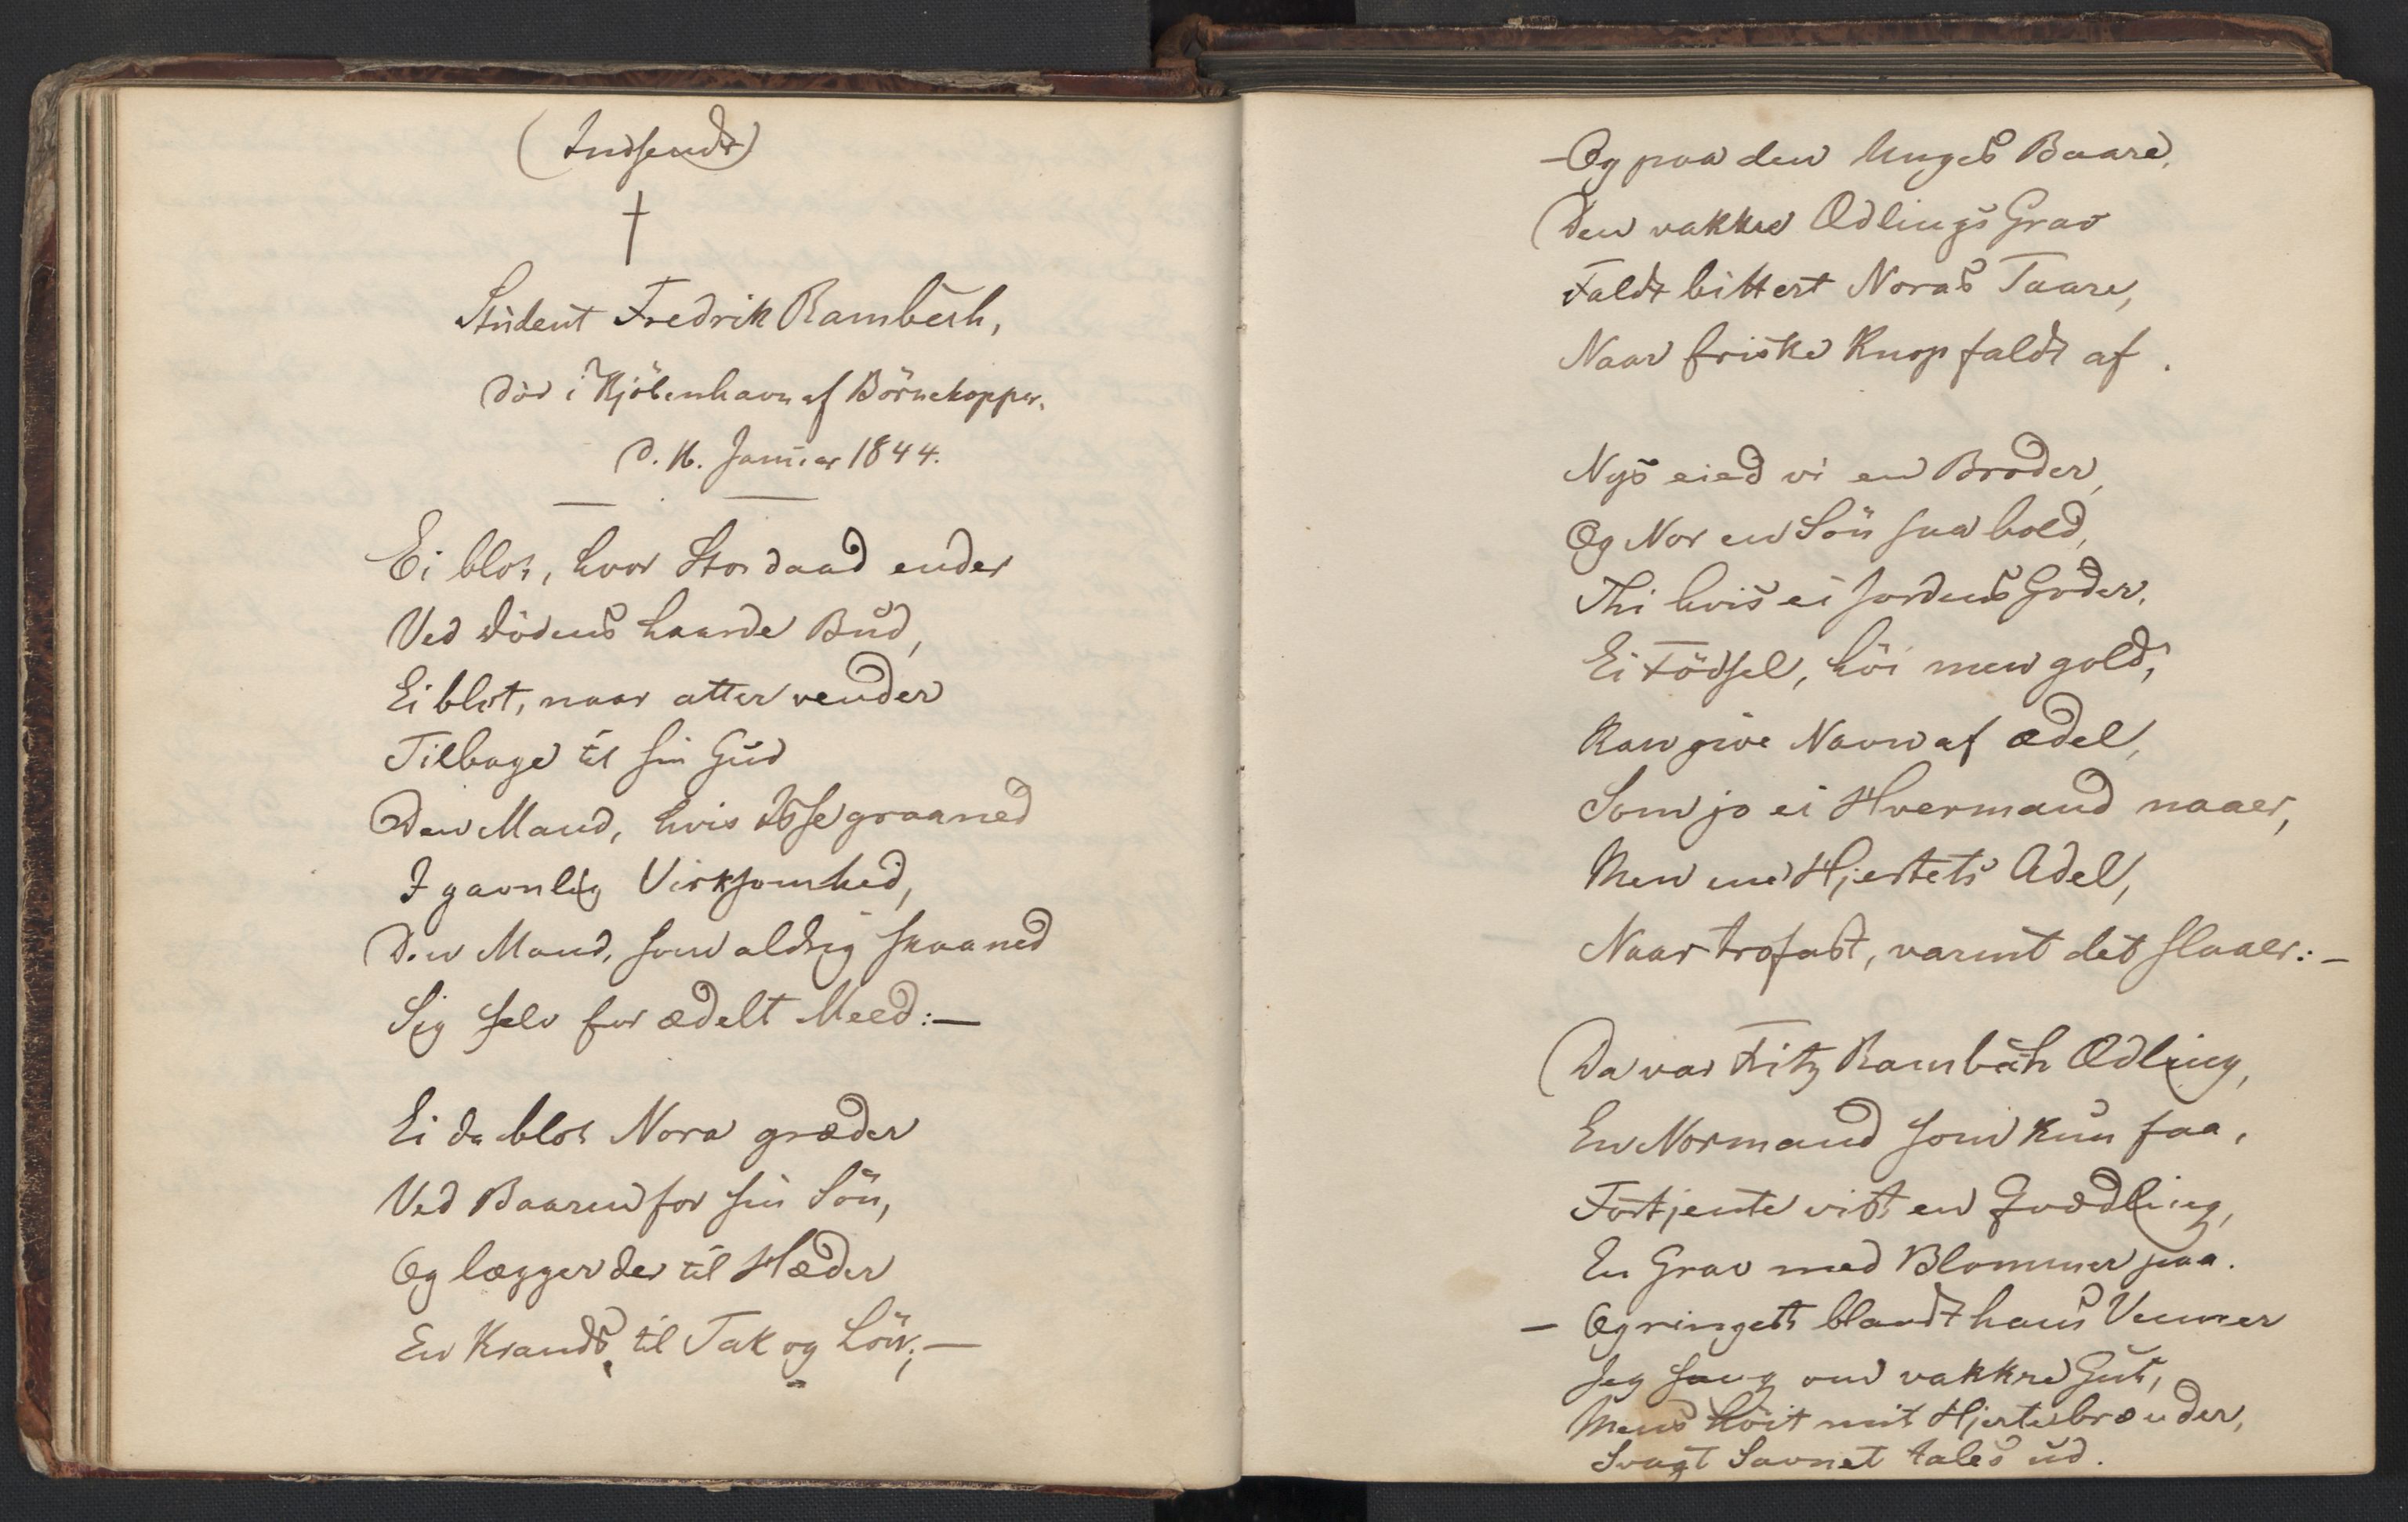 (Indsendt)
†
Student Fredrik Rambech,
död i Kjöbenhavn af Börnekopper.
d. 16. Januar 1844.
Ei blot, hvor Stordaad ender
Ved Dödens haarde Bud,
Ei blot, naar atter vender
Tilbage til sin Gud
Den Mand, hvis Isse graaned
I gavnlig Virksomhed,
Den Mand, som aldrig skaaned
Sig selv for ædelt Meed:—
Ei da blot Nora græder
Ved Baaren for sin Sön,
Og lægger der til Hæder
En Krands, til Tak og Lön;—
—Og paa den Unges Baare,
Den vakkre Ædlings Grav
Faldt bittert Noras Taare,
Naar friske Knop faldt af.
Nys eied vi en Broder,
Og Nor en Sön saa bold,
Thi hvis ei Jordens Goder,
Ei Födsel, höi men gold,
Kan give Navn af ædel,
Som jo ei Hvermand naaer,
Men en Hjertets Adel,
Naar trofast, varmt det slaaer:—
Da var Fritz Rambech Ædling,
En Normand som kun faa,
Fortjente vist en Qvædling,
En Grav med Blommer paa.
— Og ringest blandt hans Venner
Jeg sang om vakkre Gut,
Mens höit mit Hjerte brænder,
Svagt Savnet tales ud.